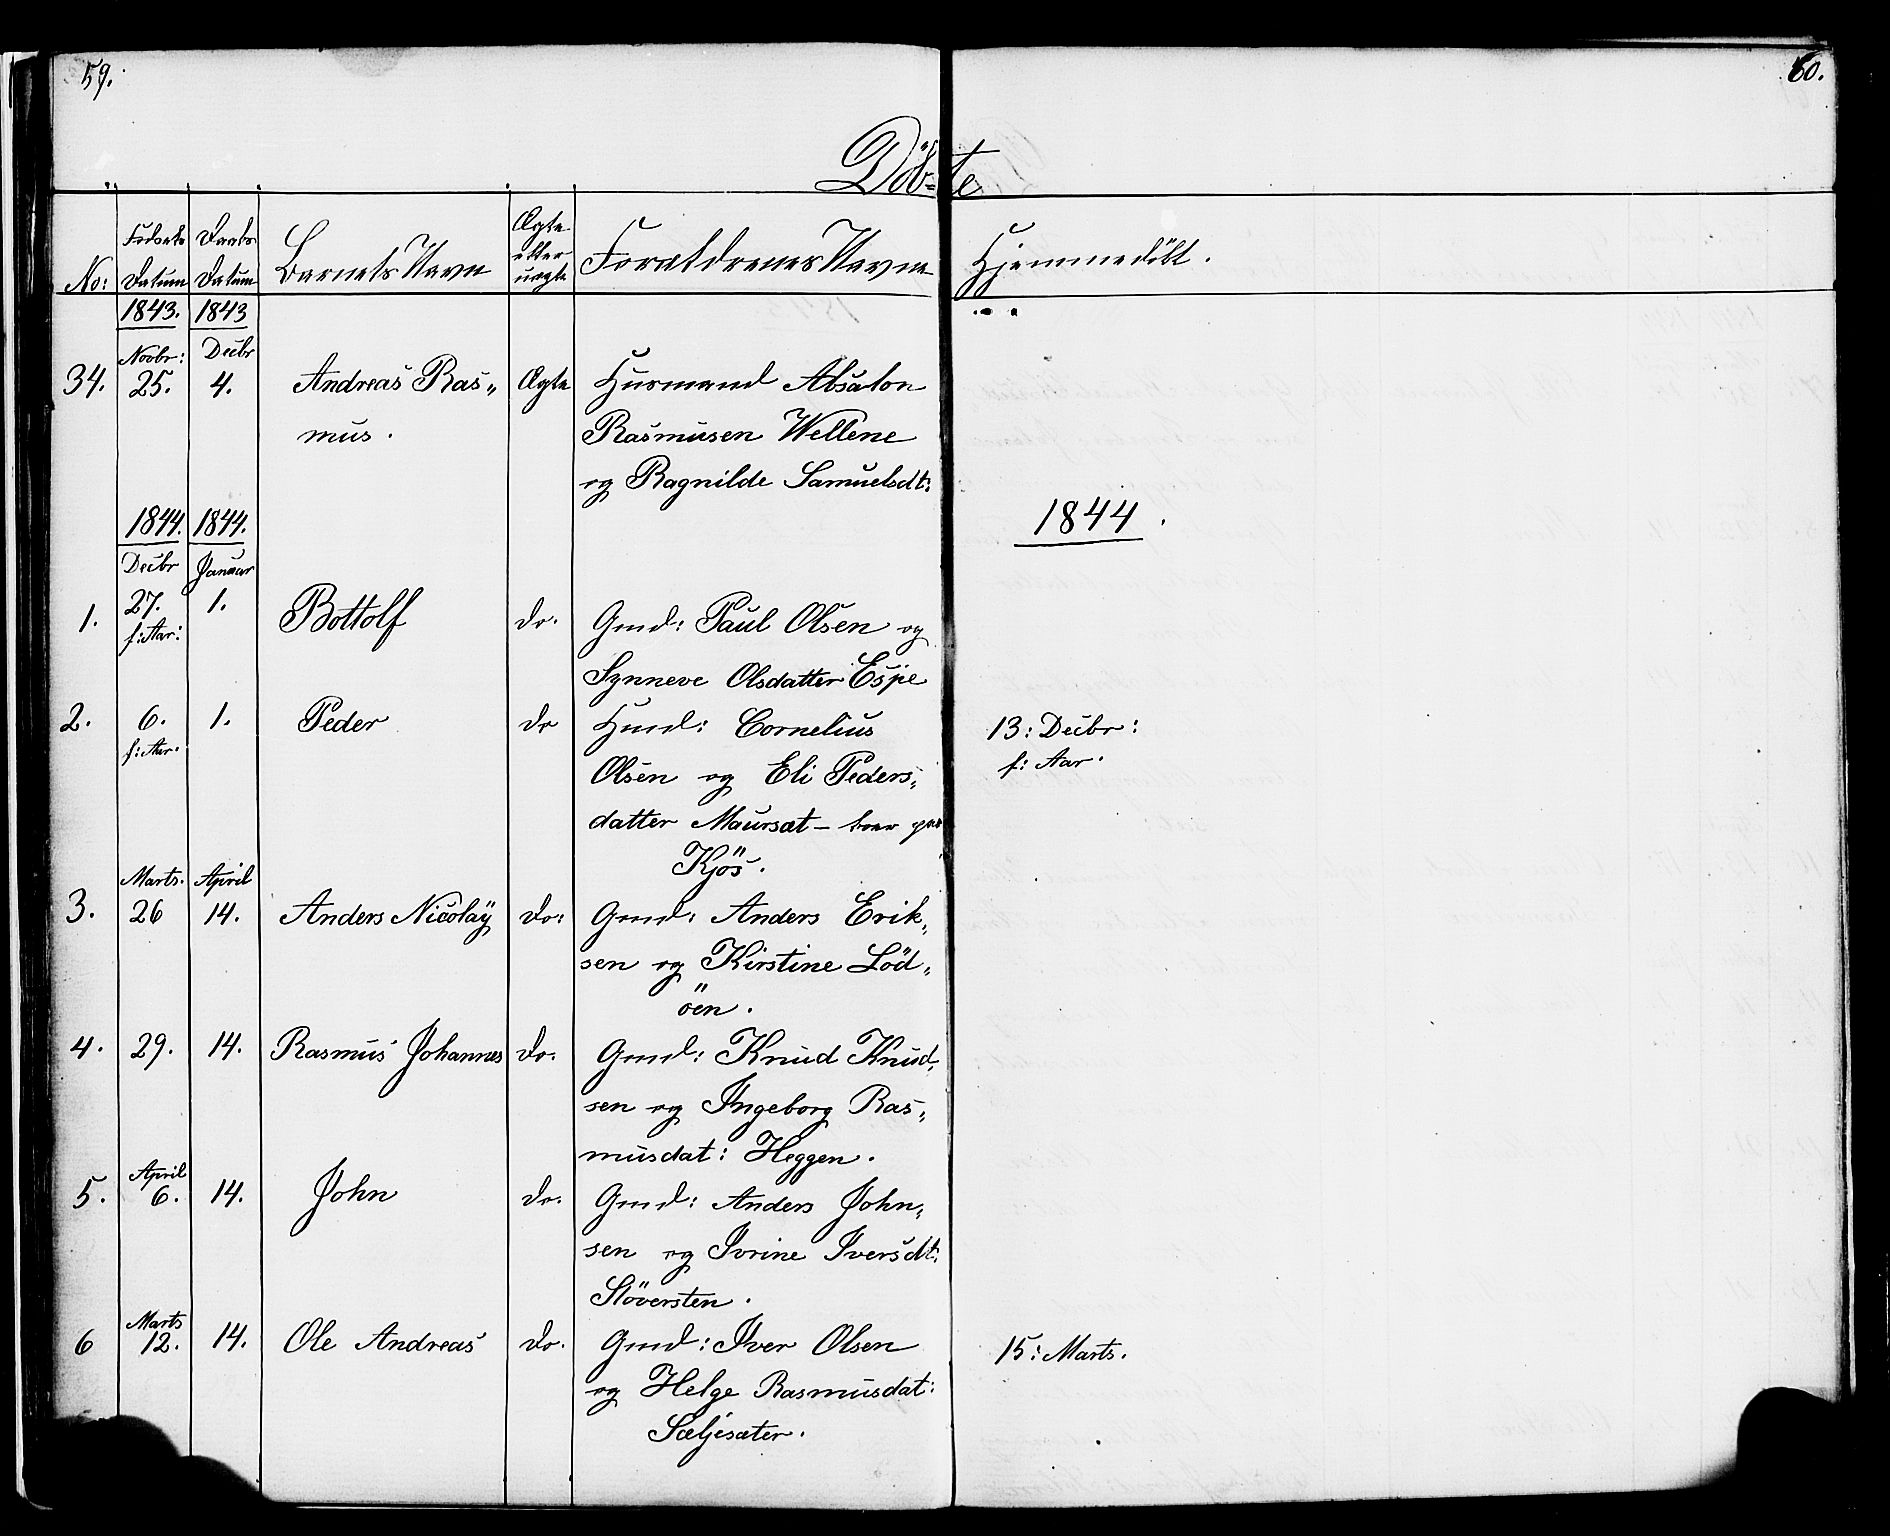 59.
60.
Döb=te
No: Fødsels Datum Daabs Datum Barnets Navn Ægte eller uægte Forældrenes Navne Hjemmedöbt.
1843. 1843
Novbr: Decbr
34. 25. 4. Andreas Ras„ Ægte Husmand Absalon
mus. Rasmusen Wellene
og Ragnilde Samuelsdt:
1844. 1844. 1844.
Decbr Januar
1. 27. 1. Bottolf do. Gmd: Paul Olsen og
f: Aar: Synneve Olsdatter Espe
2. 6. 1. Peder do Hmd: Cornelius 13: Decbr:
f: Aar. Olsen og Eli Peders„ f: Aar.
datter Maursæt –
Kjös.
Marts. April
3. 26 14. Anders Nicolaÿ do: Gmd: Anders Erik„
sen og Kirstine Löd„
öen.
4. 29. 14. Rasmus Johannes do. Gmd: Knud Knud„
sen og Ingeborg Ras„
musdat: Heggen.
April
5. 6. 14. John do. Gmd: Anders John„
sen og Ivrine Iversdt:
Stöversten.
Marts
6 12. 14. Ole Andreas do. Gmd: Iver Olsen 15: Marts.
og Helge Rasmusdat:
Sæljesæter.